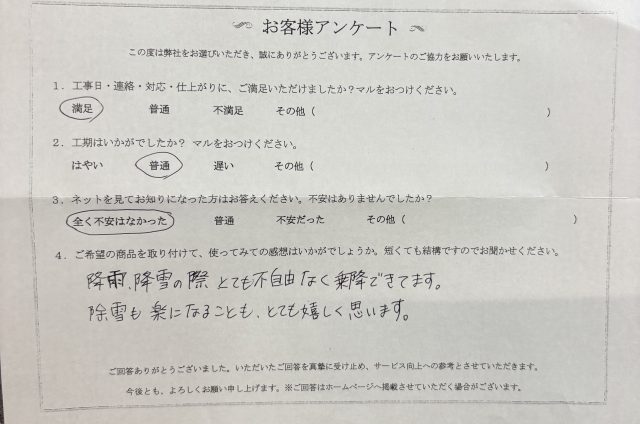 お客様アンケート
この度は弊社をお選びいただき、誠にありがとうございます。アンケートのご協力をお願いいたします。
1．工事日・連絡・対応・仕上がりに、ご満足いただけましたか？マルをおつけください。
満足　普通　不満足　その他（　）
2．工期はいかがでしたか？ マルをおつけください。
はやい　普通　遅い　その他（　）
3．ネットを見てお知りになった方はお答えください。不安はありませんでしたか？
全く不安はなかった　普通　不安だった　その他（　）
4．ご希望の商品を取り付けて、使ってみての感想はいかがでしょうか。短くても結構ですのでお聞かせください。
降雨、降雪の際 とても不自由なく乗降できてます。
除雪も 楽になることも、とても嬉しく思います。
ご回答ありがとうございました。いただいたご回答を真摯に受け止め、サービス向上への参考とさせていただきます。
今後とも、よろしくお願い申し上げます。※ご回答はホームページへ掲載させていただく場合がございます。